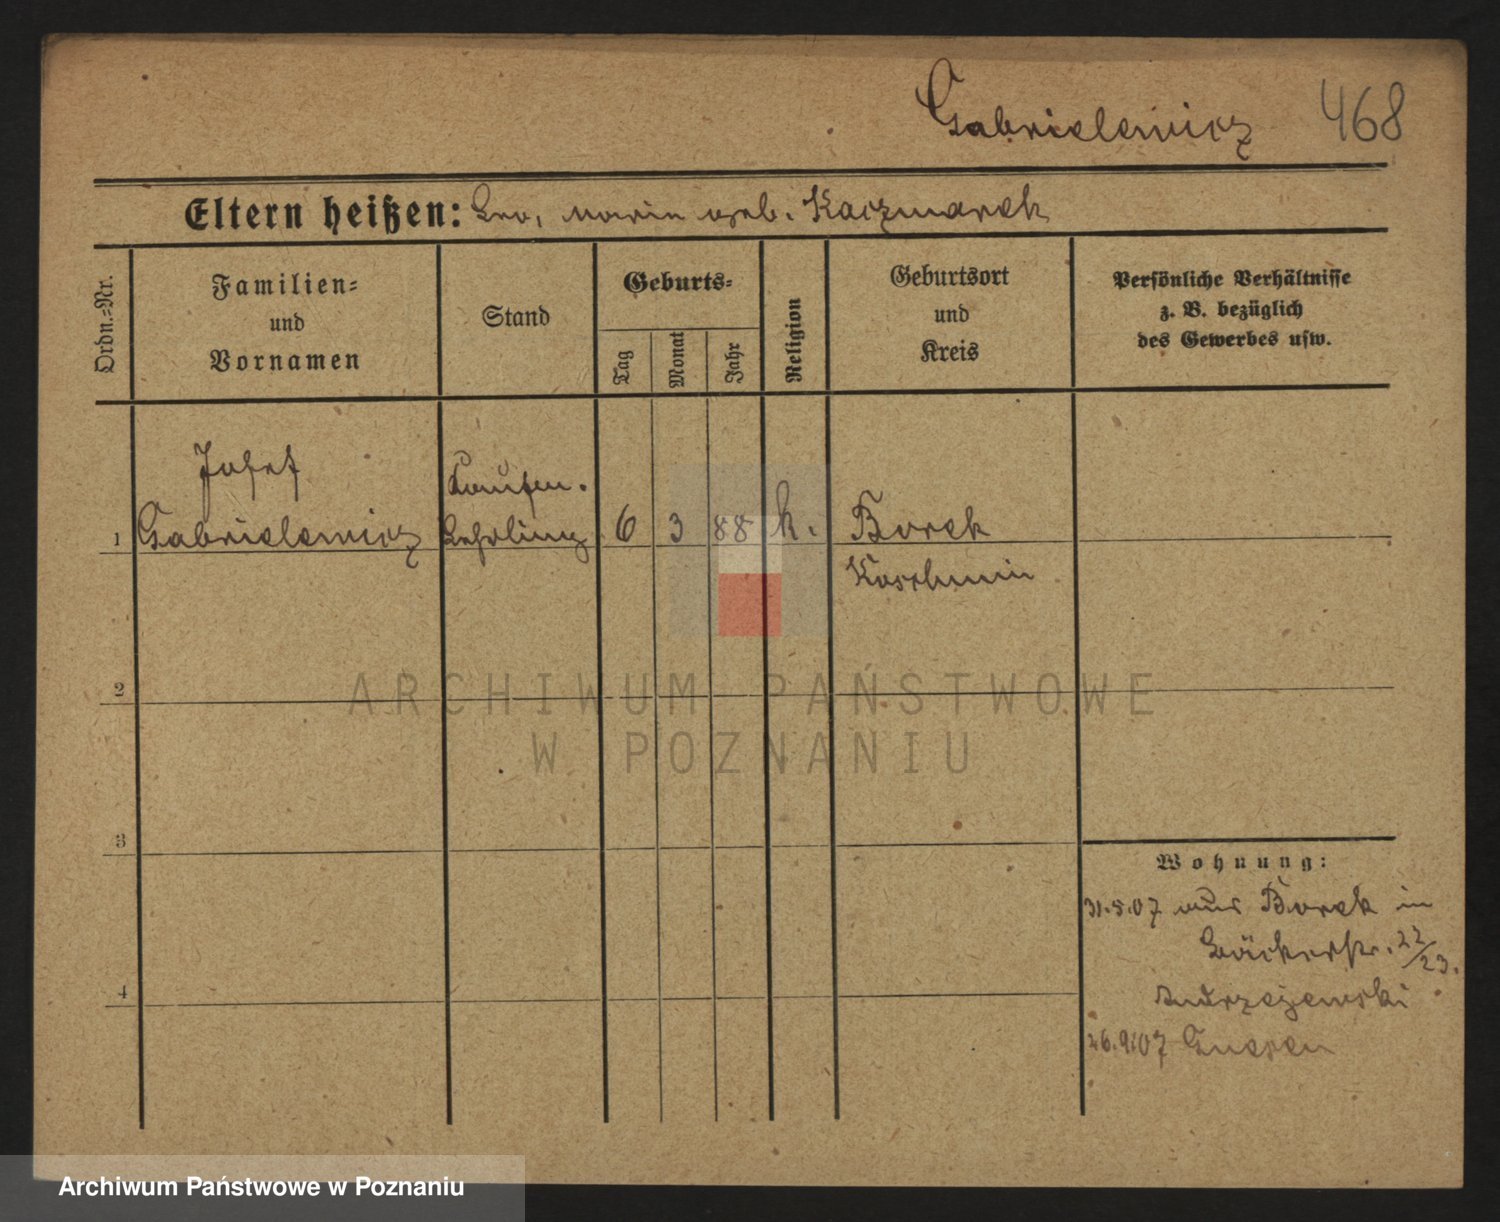 Gabrielewicz 468
Eltern heißen: Leo, Marie geb. Kaczmarek
Ordn.=Nr.
Familien=
und
Vornamen
Stand
Geburts=
Tag
Monat
Jahr
Religion
Geburtsort
und
Kreis
Persönliche Verhältnisse
z. B. bezüglich
des Gewerbes usw.
Josef
1 Gabrielewicz
Lehrling
6 3 88 k.
Borek
Koschmin
2
3
4
Wohnung:
31.5.07 aus Borek in
Bäckerstr. 22/23.
Andrzejewski
26.9.07 Gnesen
ARCHIWUM PAŃSTWOWE
W POZNANIU
Archiwum Państwowe w Poznaniu